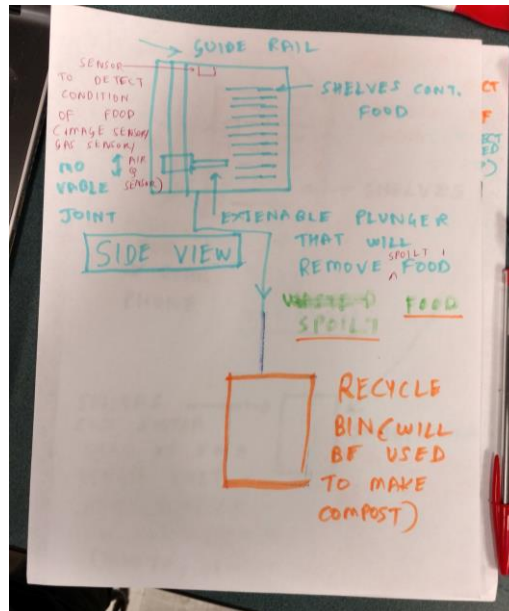 GUIDE RAIL
SENSOR
TO DETECT
CONDITION
OF FOOD
(IMAGE SENSOR/
GAS SENSOR/
AIR Q
SENSOR)
MO
VABLE
JOINT
SHELVES CONT.
FOOD
EXTENABLE PLUNGER
THAT WILL
REMOVE SPOILT FOOD
SIDE VIEW
SPOILT FOOD
RECYCLE
BIN (WILL
BE USED
TO MAKE
COMPOST)
CT
F